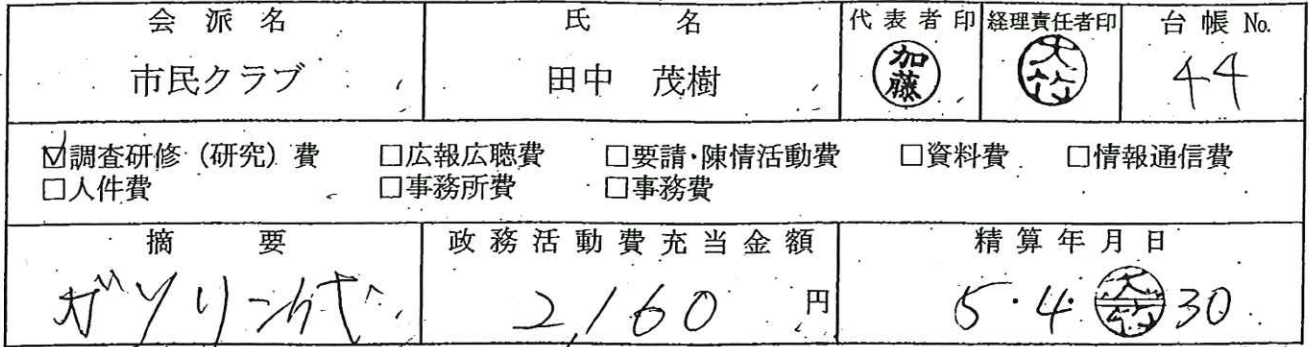 会派名 氏名 代表者印 経理責任者印 台帳No.
市民クラブ 田中 茂樹 加藤 大竹 44
☑調査研修(研究)費 □広報広聴費 □要請・陳情活動費 □資料費 □情報通信費
□人件費 □事務所費 □事務費
摘要 政務活動費充当金額 精算年月日
ガソリン代 2,160 円 5・4・大竹 30